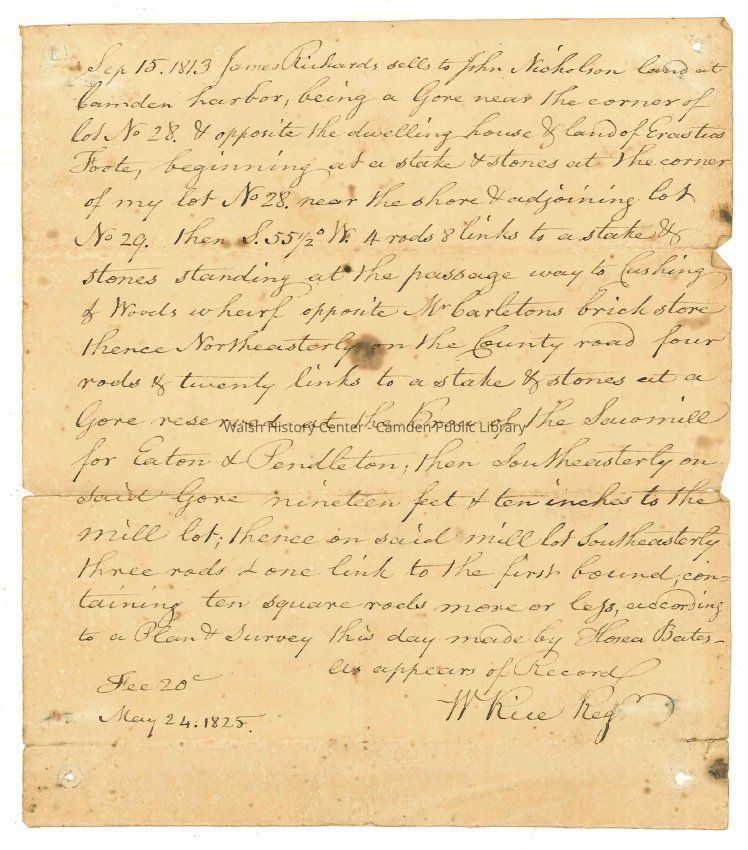 Sep 15. 1813 James Richards sells to John Nicholson land at
Camden harbor, being a Gore near the corner of
lot No 28. & opposite the dwelling house & land of Erastus
Foote, beginning at a stake & stones at the corner
of my lot No 28. near the shore & adjoining lot
No 29. then S. 55 1/2° W. 4 rods 8 links to a stake &
stones standing at the passage way to Cushing
& Woods wharf opposite Mr Carletons brick store
thence Northeasterly on the County road four
rods & twenty links to a stake & stones at a
Gore reserved at the Brow of the Sawmill
Walsh History Center - Camden Public Library
for Eaton & Pendleton; then Southeasterly on
said Gore nineteen feet & ten inches to the
mill lot; thence on said mill lot Southeasterly
three rods & one link to the first bound, con=
taining ten square rods more or less, according
to a Plan & Survey this day made by Hosea Bates -
as appears of Record
Fee 20c
W Rice Regr
May 24. 1825.